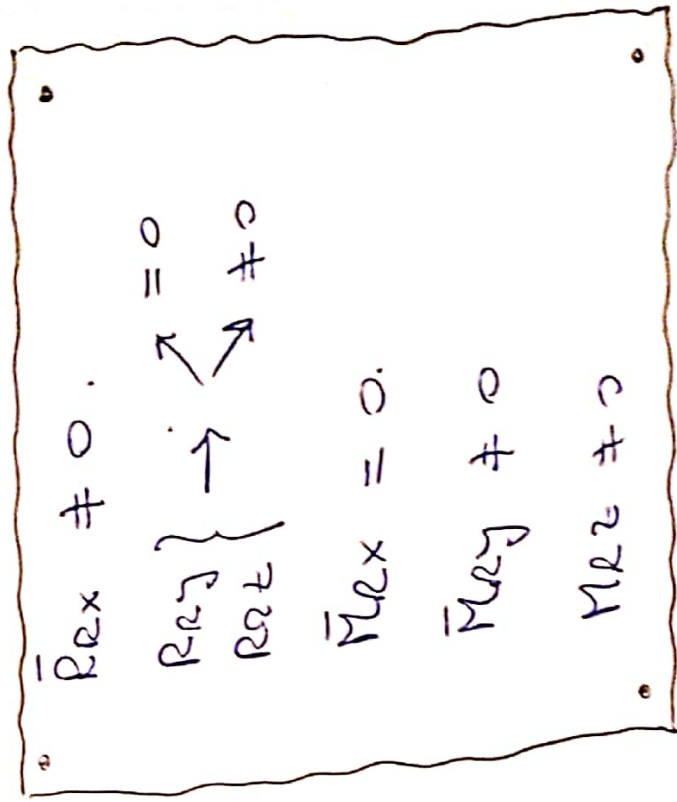 R̄Rx ≠ 0.
RRy } → ↗ = 0
RRz ↘ ≠ 0
M̄Rx = 0.
M̄Ry ≠ 0
MRz ≠ 0